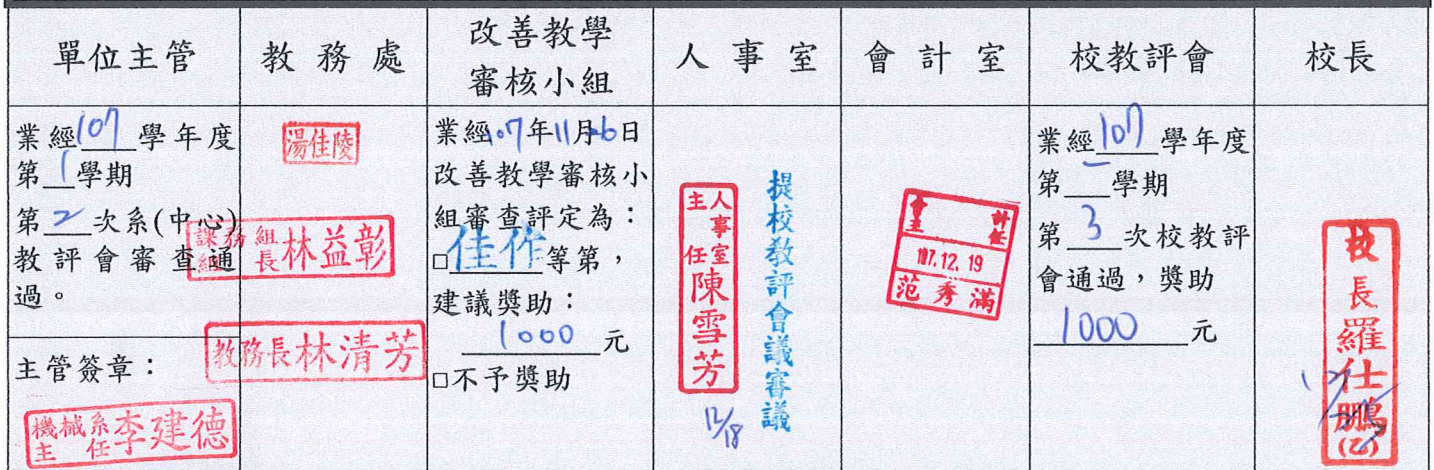 單位主管
教務處
改善教學
審核小組
人事室
會計室
校教評會
校長
業經107學年度
第1學期
第2次系(中心)
教評會審查通
過。
主管簽章：
機械系
主任
李建德
湯佳陵
課務組
組長
林益彰
教務長林清芳
業經107年11月26日
改善教學審核小
組審查評定為：
□佳作等第，
建議獎助：
1000元
□不予獎助
人事室
主任
陳雪芳
12/18
提校教評會議審議
會計
主任
107.12.19
范秀滿
業經107學年度
第__學期
第3次校教評
會通過，獎助
1000元
校長羅仕鵬
(乙)